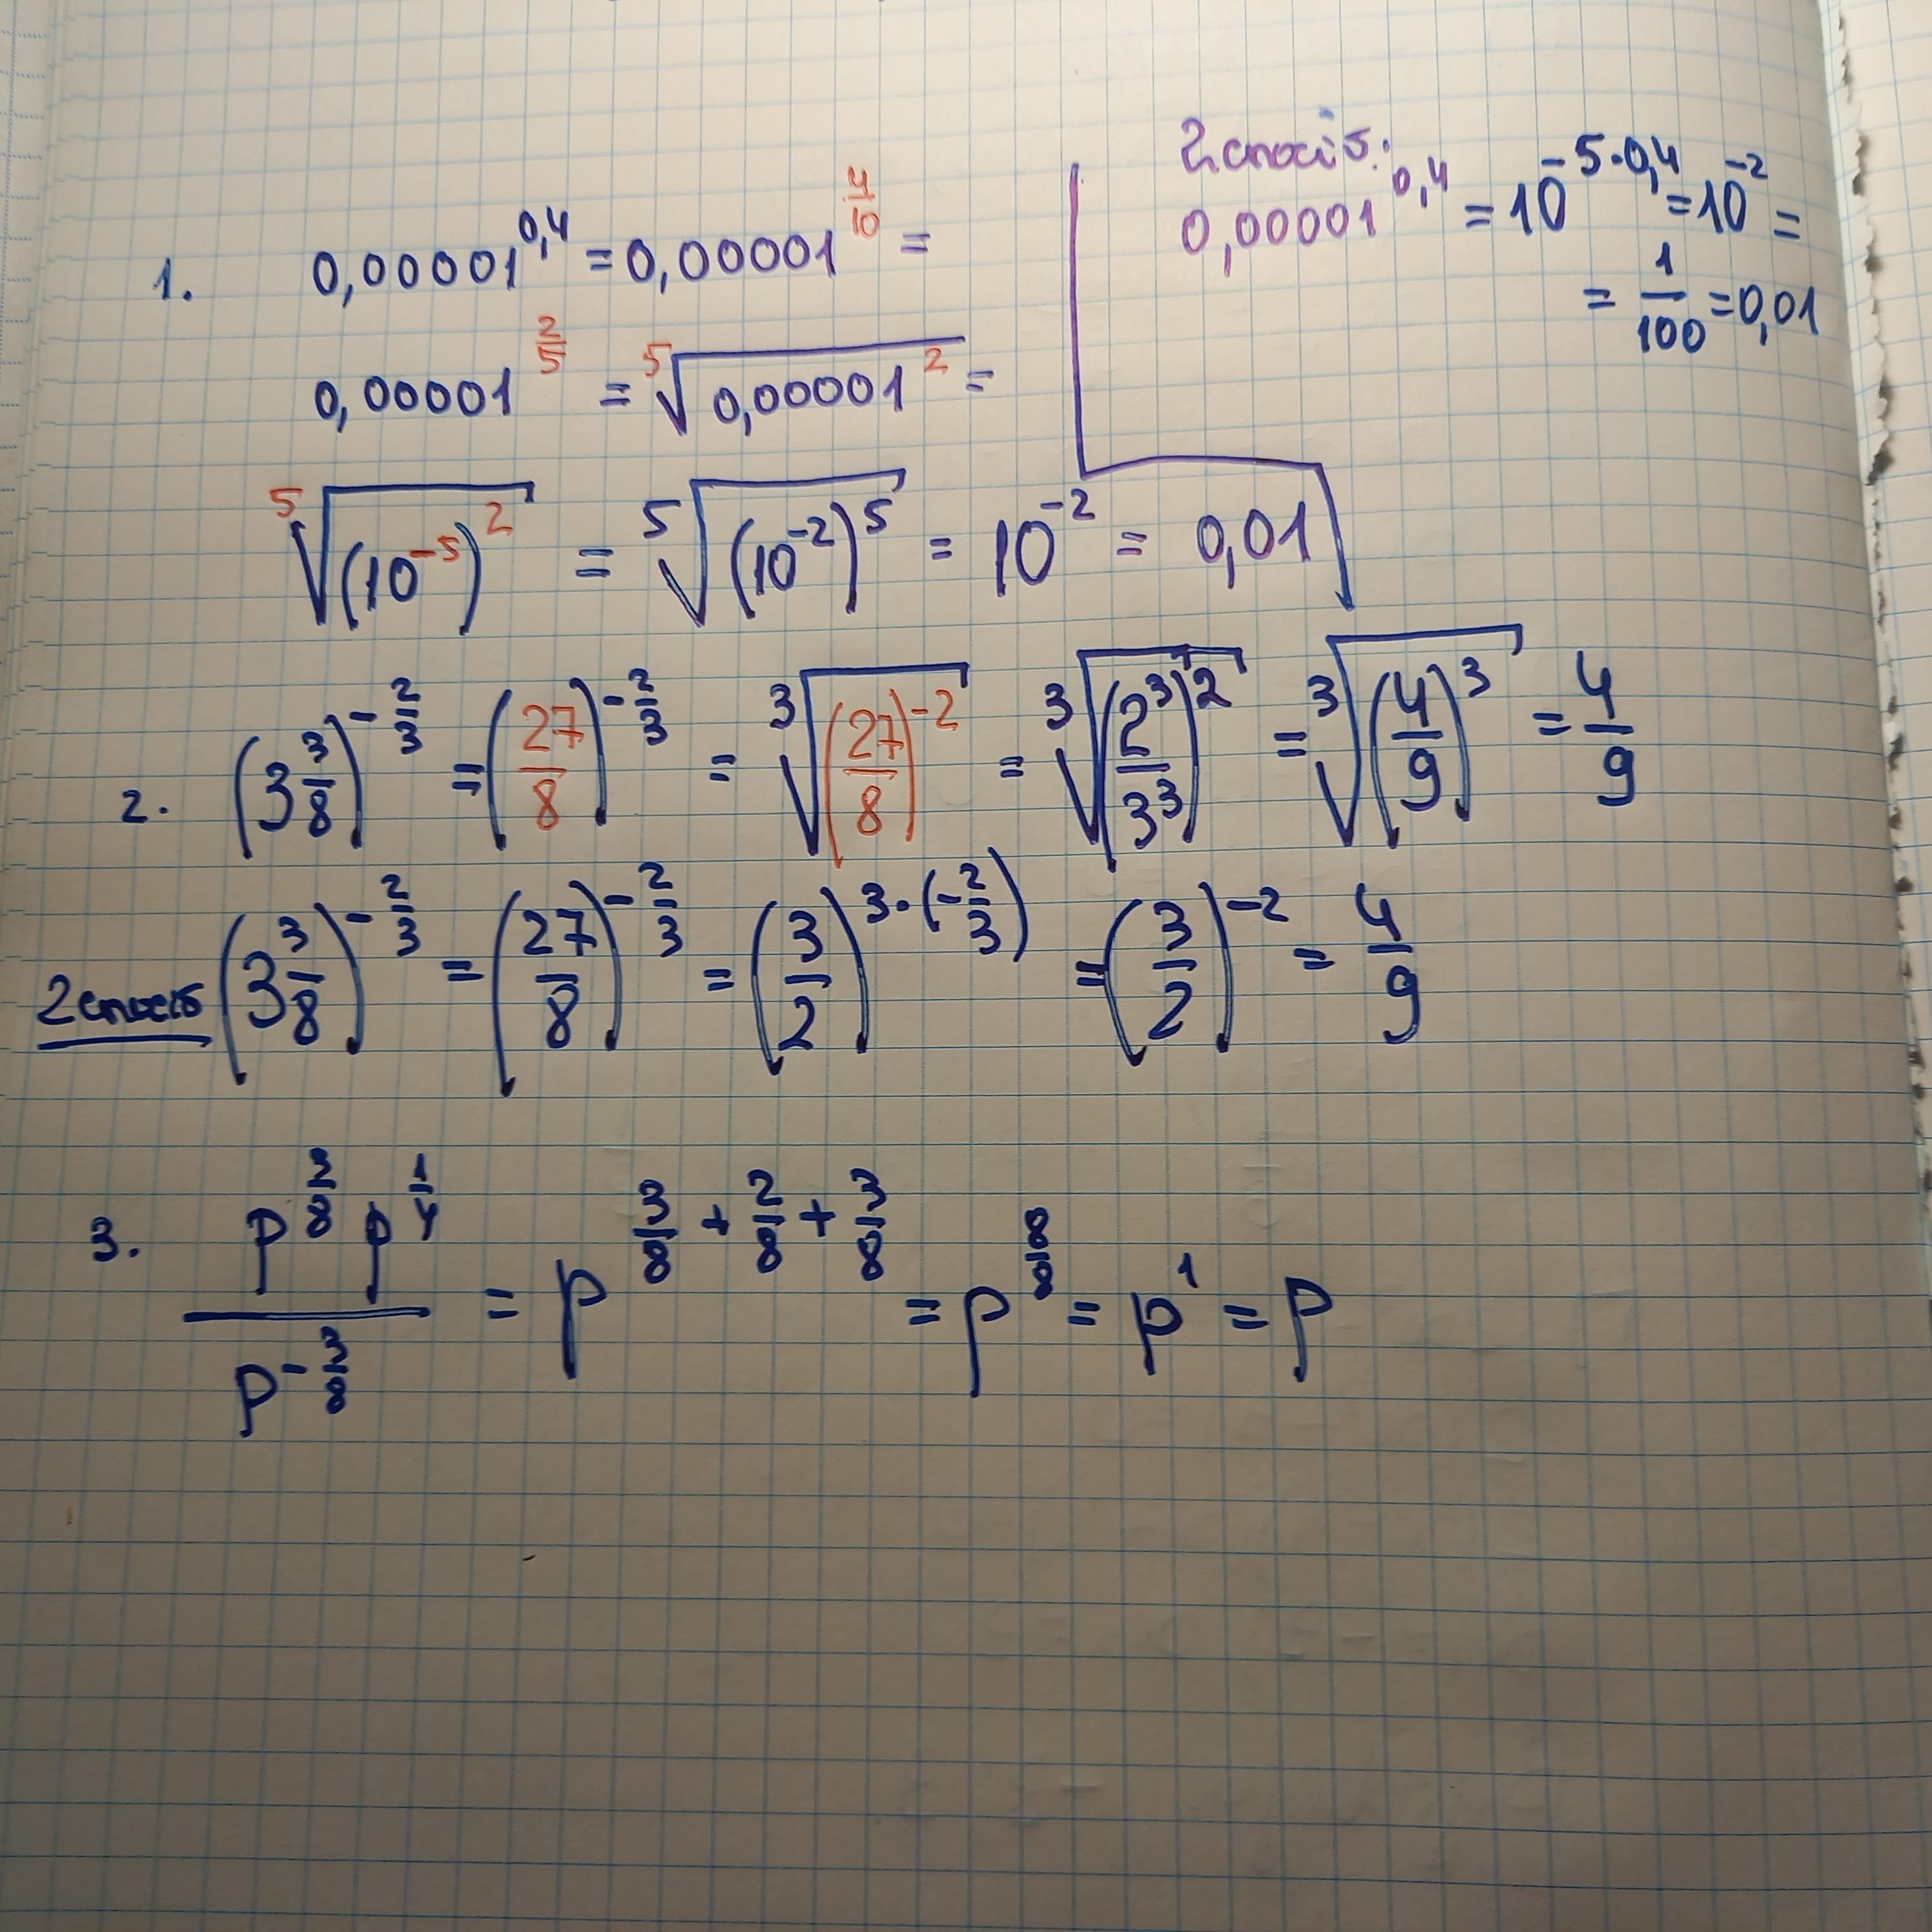 1. 0,00001^0,4 = 0,00001^4/10 =
0,00001^2/5 = ⁵√(0,00001^2) =
⁵√((10^-5)^2) = ⁵√((10^-2)^5) = 10^-2 = 0,01
2 спосіб:
0,00001^0,4 = 10^-5·0,4 = 10^-2 =
= 1/100 = 0,01
2. (3 3/8)^-2/3 = (27/8)^-2/3 = ³√((27/8)^-2) = ³√((2^3/3^3)^2) = ³√((4/9)^3) = 4/9
2 спосіб (3 3/8)^-2/3 = (27/8)^-2/3 = (3/2)^3·(-2/3) = (3/2)^-2 = 4/9
3. (p^3/8 p^1/4)/(p^-3/8) = p^3/8+2/8+3/8 = p^8/8 = p^1 = p